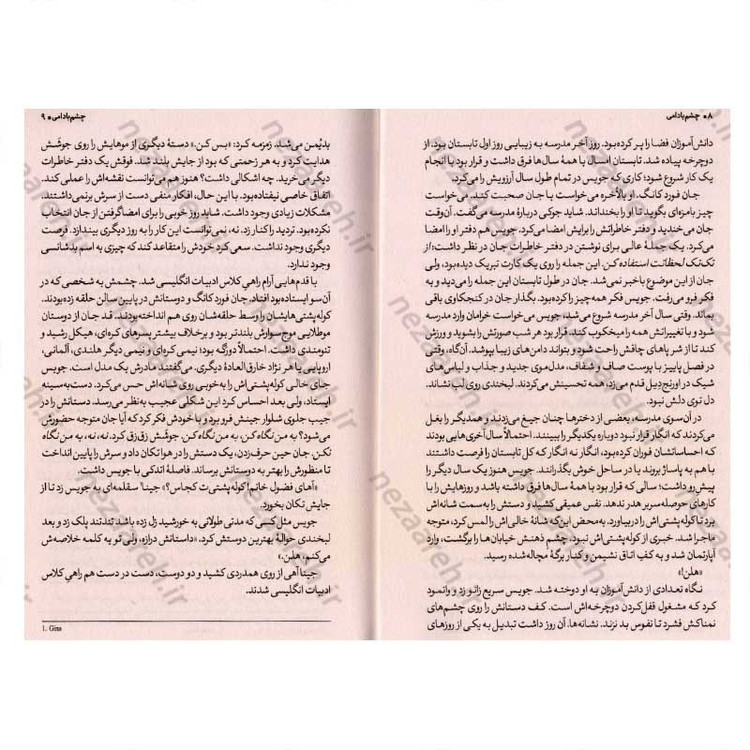 ۸ • چشم‌بادامی
دانش‌آموزان فضا را پر کرده بود. روز آخر مدرسه به زیبایی روز اول تابستان بود. از
دوچرخه پیاده شد. تابستان امسال با همهٔ سال‌ها فرق داشت و قرار بود با انجام
یک کار شروع شود؛ کاری که جویس در تمام طول سال آرزویش را می‌کرد.
جان فورد کانگ. او بالأخره می‌خواست با جان صحبت کند. می‌خواست
چیز بامزه‌ای بگوید تا او را بخنداند. شاید جوکی دربارهٔ مدرسه می‌گفت. آن‌وقت
جان می‌خندید و دفتر خاطراتش را برایش امضا می‌کرد. جویس هم دفتر او را امضا
می‌کرد. یک جملهٔ عالی برای نوشتن در دفتر خاطرات جان در نظر داشت: از
تک‌تک لحظاتت استفاده کن. این جمله را روی یک کارت تبریک دیده بود، ولی
جان از این موضوع باخبر نمی‌شد. جان در طول تابستان این جمله را می‌دید و به
فکر فرو می‌رفت. جویس فکر همه‌چیز را کرده بود. بگذار جان در کنجکاوی باقی
بماند. وقتی سال آخر مدرسه شروع می‌شد، جویس می‌خواست خرامان وارد مدرسه
شود و با تغییراتش همه را میخکوب کند. قرار بود هر شب صورتش را بشوید و ورزش
کند تا از شر پاهای چاقش راحت شود و بتواند دامن‌های زیبا بپوشد. آن‌گاه، وقتی
در فصل پاییز با پوست صاف و شفاف، مدل‌موی جدید و جذاب و لباس‌های
شیک در اورنج‌دیل قدم می‌زد، همه تحسینش می‌کردند. لبخندی روی لب نشاند.
دل توی دلش نبود.
در آن‌سوی مدرسه، بعضی از دخترها چنان جیغ می‌زدند و همدیگر را بغل
می‌کردند که انگار قرار نبود دوباره یکدیگر را ببینند. احتمالاً سال آخری‌هایی بودند
که احساساتشان فوران کرده بود، انگار نه انگار که کل تابستان را فرصت داشتند
با هم به پاساژ بروند یا در ساحل خوش بگذرانند. جویس هنوز یک سال دیگر را
پیش‌رو داشت؛ سالی که قرار بود با همهٔ سال‌ها فرق داشته باشد و روزهایش را با
کارهای حوصله‌سربر هدر ندهد. نفس عمیقی کشید و دستش را به سمت شانه‌اش
برد تا کوله‌پشتی‌اش را دربیاورد. به‌محض این‌که شانهٔ خالی‌اش را لمس کرد، متوجه
ماجرا شد. خبری از کوله‌پشتی‌اش نبود. چشم ذهنش خیابان‌ها را برگشت، وارد
آپارتمان شد و به کف اتاق نشیمن و کنار برگهٔ مچاله‌شده رسید.
«هلن!»
نگاه تعدادی از دانش‌آموزان به او دوخته شد. جویس سریع زانو زد و وانمود
کرد که مشغول قفل‌کردن دوچرخه‌اش است. کف دستانش را روی چشم‌های
نمناکش فشرد تا نفوس بد نزند. نشانه‌ها، آن روز داشت تبدیل به یکی از روزهای
چشم‌بادامی • ۹
بدیُمن می‌شد. زمزمه کرد: «بس کن.» دستهٔ دیگری از موهایش را روی جوشش
هدایت کرد و به هر زحمتی که بود از جایش بلند شد. فوقش یک دفتر خاطرات
دیگر می‌خرید. چه اشکالی داشت؟ هنوز هم می‌توانست نقشه‌اش را عملی کند.
اتفاق خاصی نیفتاده بود. با این حال، افکار منفی دست از سرش برنمی‌داشتند.
مشکلات زیادی وجود داشت. شاید روز خوبی را برای امضاگرفتن از جان انتخاب
نکرده بود. تردید را کنار زد. نه، نمی‌توانست این کار را به روز دیگری بیندازد. فرصت
دیگری وجود نداشت. سعی کرد خودش را متقاعد کند که چیزی به اسم بدشانسی
وجود ندارد.
با قدم‌هایی آرام راهیِ کلاس ادبیات انگلیسی شد. چشمش به شخصی که در
آن‌سو ایستاده بود افتاد. جان فورد کانگ و دوستانش در پایین سالن حلقه زده بودند.
کوله‌پشتی‌هایشان را وسط حلقه‌شان روی هم انداخته بودند. قد جان از دوستان
موطلایی موج‌سوارش بلندتر بود و برخلاف بیشتر پسرهای کره‌ای، هیکل رشید و
تنومندی داشت. احتمالاً دورگه بود؛ نیمی کره‌ای و نیمی دیگر هلندی، آلمانی،
اروپایی یا هر نژاد خارق‌العادهٔ دیگری. می‌گفتند مادرش یک مدل است. جویس
جای خالی کوله‌پشتی‌اش را به‌خوبی روی شانه‌اش حس می‌کرد. دست‌به‌سینه
ایستاد، ولی بعد احساس کرد این شکلی عجیب به‌نظر می‌رسد. دستانش را در
جیب جلوی شلوار جینش فرو برد و با خودش فکر کرد که آیا جان متوجه حضورش
می‌شود؟ به من نگاه کن. به من نگاه کن. جوشش زق‌زق کرد. نه، نه، به من نگاه
نکن. جان حین حرف‌زدن، یک دستش را در هوا تکان داد و سرش را پایین انداخت
تا منظورش را بهتر به دوستانش برساند. فاصلهٔ اندکی با جویس داشت.
«آهای فضول خانم! کوله‌پشتی‌ت کجاس؟» جینا۱ سقلمه‌ای به جویس زد تا از
جایش تکان بخورد.
جویس مثل کسی که مدتی طولانی به خورشید زل زده باشد تندتند پلک زد و بعد
لبخندی حوالهٔ بهترین دوستش کرد. «داستانش درازه، ولی تو یه کلمه خلاصه‌ش
می‌کنم، هلن.»
جینا آهی از روی همدردی کشید و دو دوست، دست در دست هم راهیِ کلاس
ادبیات انگلیسی شدند.
1. Gina
nezaareh.ir